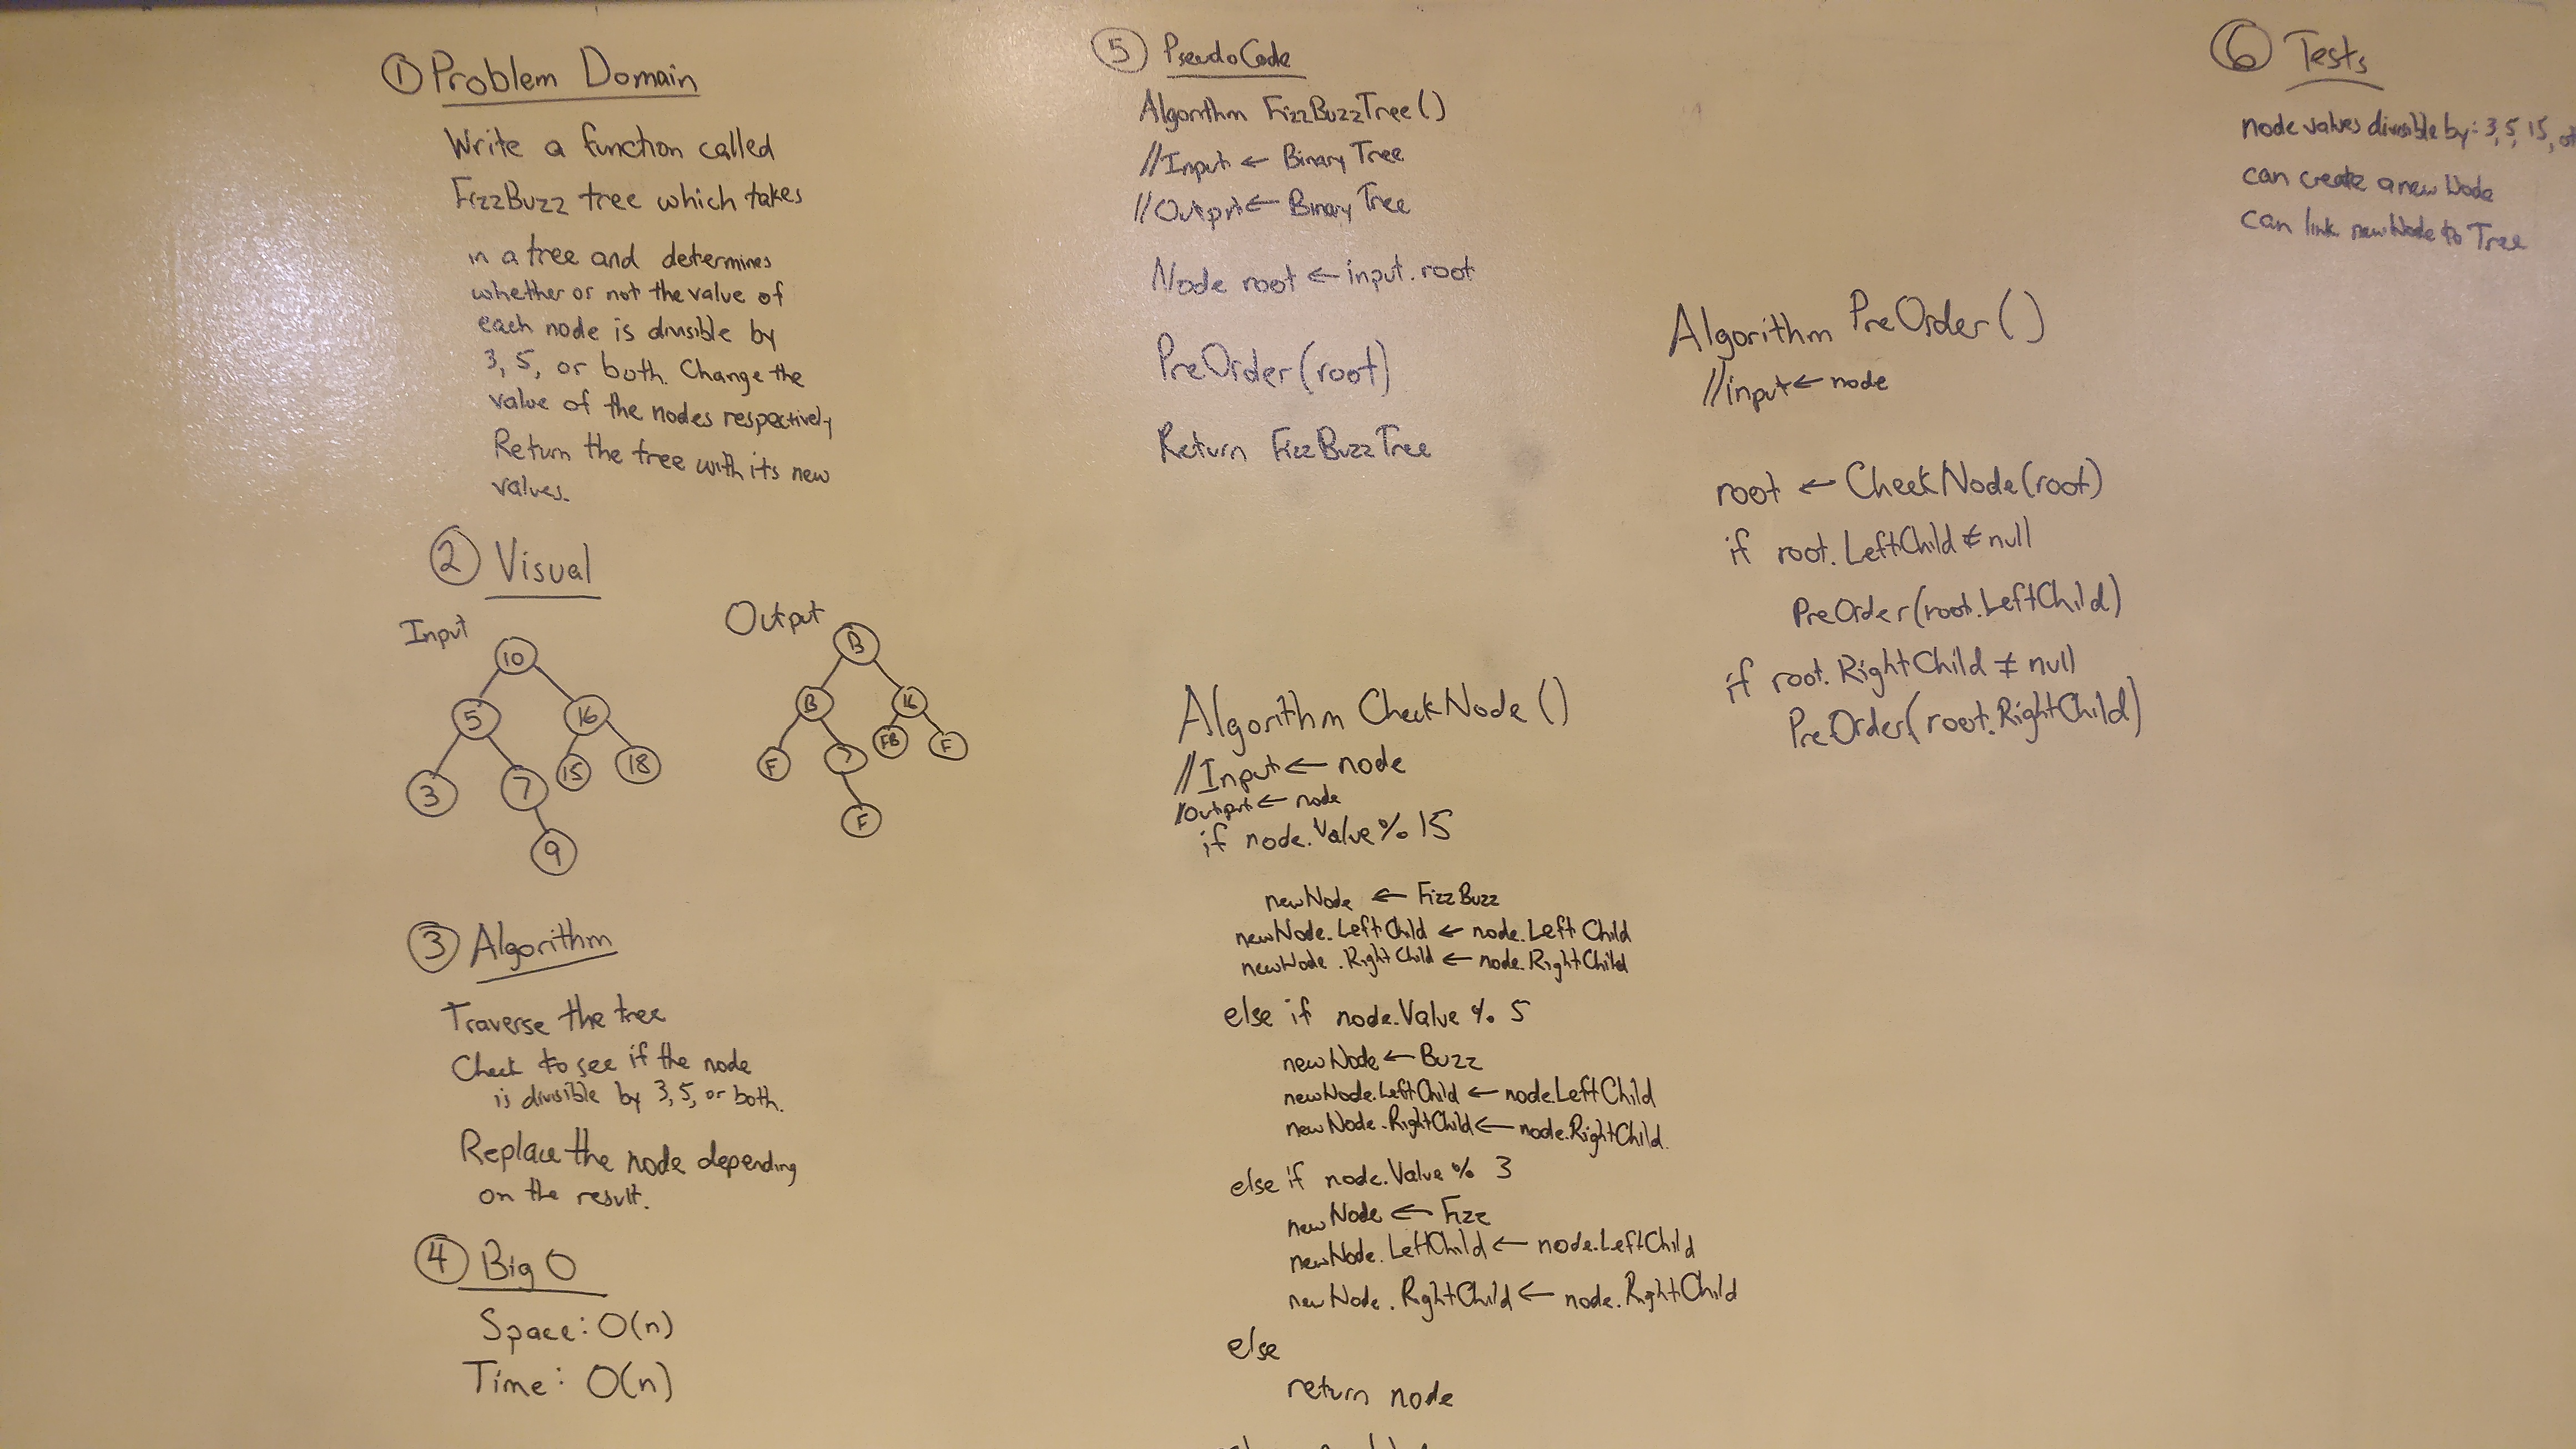 ① Problem Domain
Write a function called
FizzBuzz tree which takes
in a tree and determines
whether or not the value of
each node is divisible by
3, 5, or both. Change the
value of the nodes respectively
Return the tree with its new
values.
② Visual
Input
10
5 16
3 7 15 18
9
Output
B
B 16
F 7 FB F
F
③ Algorithm
Traverse the tree
Check to see if the node
is divisible by 3, 5, or both.
Replace the node depending
on the result.
④ Big O
Space: O(n)
Time: O(n)
⑤ PseudoCode
Algorithm FizzBuzzTree()
//Input ← Binary Tree
//Output ← Binary Tree
Node root ← input.root
PreOrder(root)
Return FizzBuzzTree
Algorithm CheckNode()
//Input ← node
//Output ← node
if node.Value % 15
newNode ← FizzBuzz
newNode.LeftChild ← node.LeftChild
newNode.RightChild ← node.RightChild
else if node.Value % 5
newNode ← Buzz
newNode.LeftChild ← node.LeftChild
newNode.RightChild ← node.RightChild.
else if node.Value % 3
newNode ← Fizz
newNode.LeftChild ← node.LeftChild
newNode.RightChild ← node.RightChild
else
return node
Algorithm PreOrder()
//input ← node
root ← CheckNode(root)
if root.LeftChild ≠ null
PreOrder(root.LeftChild)
if root.RightChild ≠ null
PreOrder(root.RightChild)
⑥ Tests
node values divisible by: 3, 5, 15,
can create a new Node
can link newNode to Tree